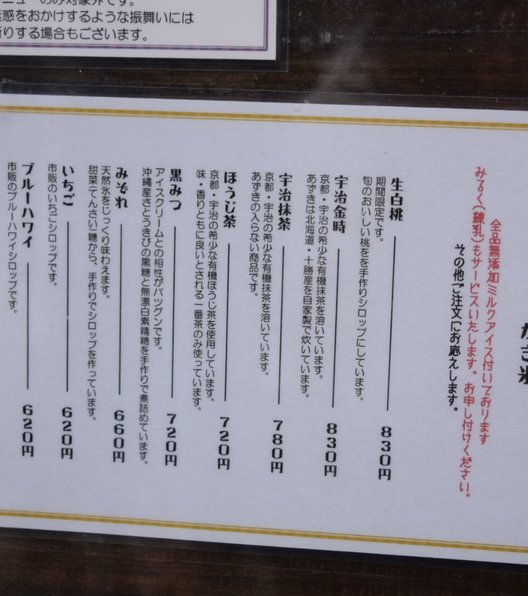 ューのみ対象外です。
惑をおかけするような振舞いには
りする場合もございます。
かき氷
全品無添加ミルクアイス付いております
みるく(練乳)もサービスいたします。お申し付けください。
その他ご注文にお応えします。
生白桃 830円
期間限定です。
旬のおいしい桃をを手作りシロップにしています。
宇治金時 830円
京都・宇治の希少な有機抹茶を溶いています。
あずきは北海道・十勝産を自家製で炊いています。
宇治抹茶 780円
京都・宇治の希少な有機抹茶を溶いています。
あずきの入らない商品です。
ほうじ茶 720円
京都・宇治の希少な有機ほうじ茶を使用しています。
味・香りともに良いとされる一番茶のみ使っています。
黒みつ 720円
アイスクリームとの相性がバツグンです。
沖縄産さとうきびの黒糖と無漂白素精糖を手作りで煮詰めています。
みぞれ 660円
天然氷をじっくり味わえます。
甜菜(てんさい)糖から、手作りでシロップを作っています。
いちご 620円
市販のいちごシロップです。
ブルーハワイ 620円
市販のブルーハワイシロップです。